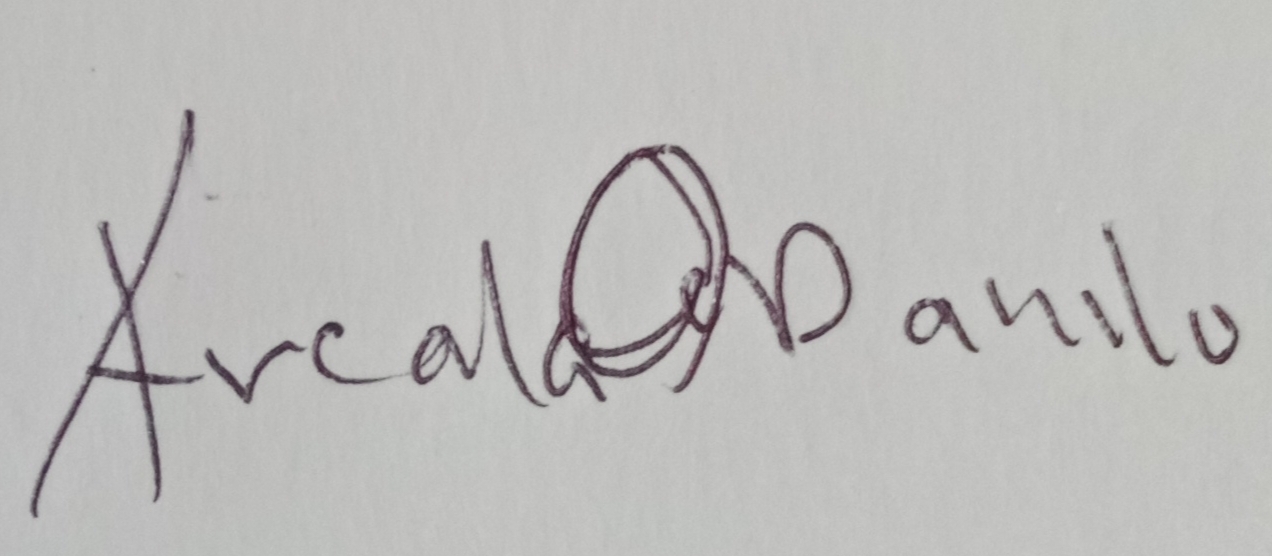 Arcala Danilo